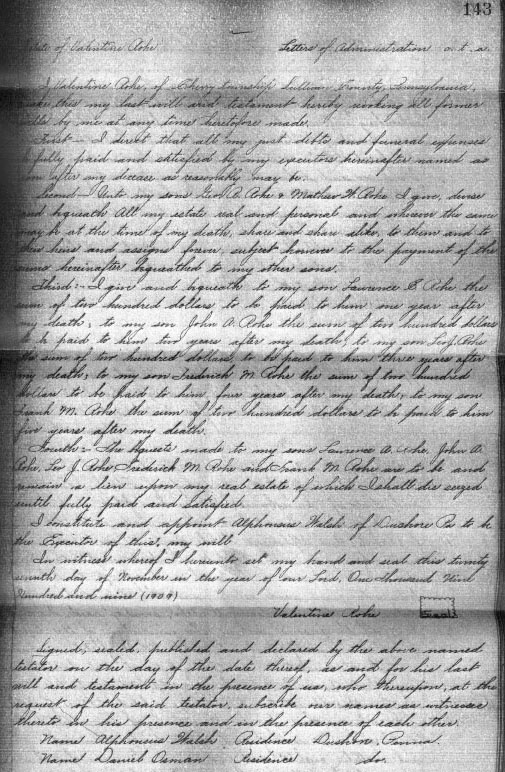 143
Estate of Valentine Rohe Letters of Administration c. t. a.
I, Valentine Rohe, of Cherry township Sullivan County, Pennsylvania,
make this my last will and testament hereby revoking all former
wills by me at any time heretofore made.
First - I direct that all my just debts and funeral expenses
be fully paid and satisfied by my executors hereinafter named as
soon after my decease as reasonably may be.
Second - Unto my sons Geo. A. Rohe & Mathew W. Rohe I give, devise
and bequeath All my estate real and personal and wherever the same
may be at the time of my death, share and share alike, to them and to
their heirs and assigns forever, subject however to the payment of the
sums hereinafter bequeathed to my other sons.
Third :- I give and bequeath to my son Lawrence B. Rohe the
sum of two hundred dollars to be paid to him one year after
my death; to my son John A. Rohe the sum of two hundred dollars
to be paid to him two years after my death; to my son Leo J. Rohe
the sum of two hundred dollars, to be paid to him three years after
my death; to my son Fredrick M. Rohe the sum of two hundred
dollars to be paid to him four years after my death; to my son
Frank M. Rohe the sum of two hundred dollars to be paid to him
five years after my death.
Fourth :- The bequests made to my sons Laurence A. Rohe, John A.
Rohe, Leo J. Rohe Frederick M. Rohe and Frank M. Rohe are to be and
remain a lien upon my real estate of which I shall die seized
until fully paid and satisfied.
I constitute and appoint Alphonsus Walsh of Dushore Pa to be
the Executor of this, my will
In witness whereof I hereunto set my hand and seal this twenty
seventh day of November in the year of our Lord, One thousand Nine
Hundred and nine (1909)
Valentine Rohe Seal
Signed, sealed, published and declared by the above named
testator on the day of the date thereof, as and for his last
will and testament in the presence of us, who thereupon, at the
request of the said testator, subscribe our names as witnesses
thereto in his presence and in the presence of each other.
Name Alphonsus Walsh Residence Dushore, Penna.
Name Daniel Osman Residence do.